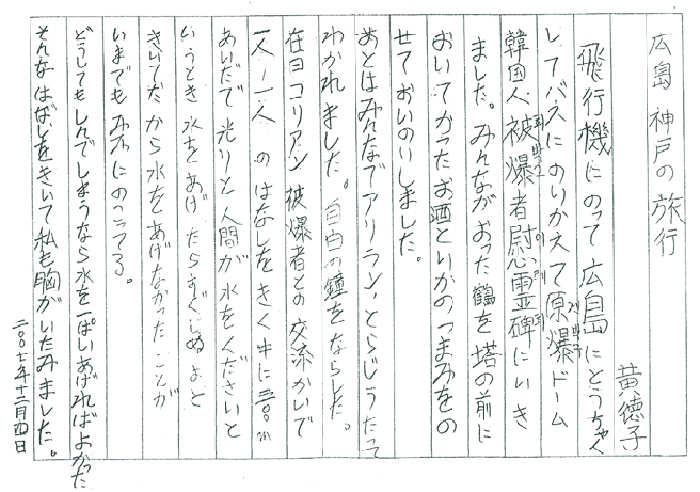 広島 神戸の旅行
黄徳子
飛行機にのって広島にとうちゃく
してバスにのりかえて原爆ドーム
韓国人被爆者慰霊碑にいき
ました。みんながおった鶴を塔の前に
おいてかったお酒といかのつまみをの
せておいのいしました。
あとはみんなでアリラン、とらじうたって
わかれました。自由の鐘をならした。
在日コリアン被爆者との交流かいで
一人一人のはなしをきく中に
あいだで光りと人間が水をくださいと
いうとき水をあげたらすぐしぬよと
きいてたから水をあげなかったことが
いまでもみみにのこってる。
どうしてもしんでしまうなら水を一ぱいあげればよかった
そんなはなしをきいて私も胸がいたみました。
二〇〇七年十二月四日